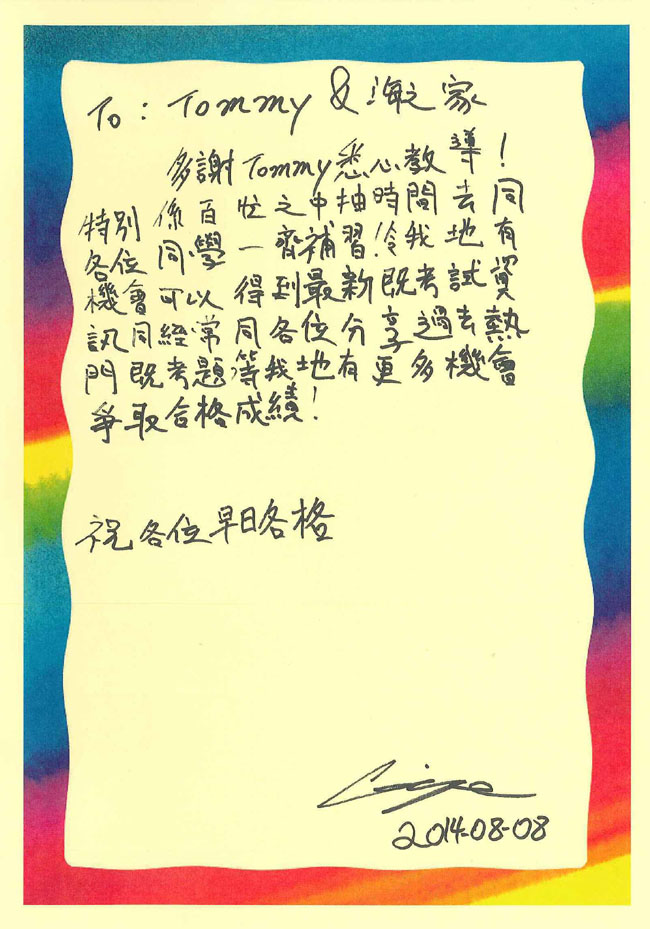 To: Tommy & 海之家
多謝Tommy悉心教導!
特別係百忙之中抽時間去同
各位同學一齊補習!冷我地有
機會可以得到最新既考試資
訊同經常同各位分享過去熱
門既考題等我地有更多機會
爭取合格成績!
祝各位早日各格
2014-08-08